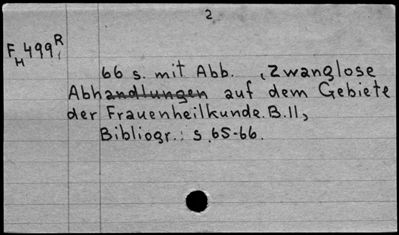 2
F H 499, R
66 s. mit Abb. , Zwanglose
Abhandlungen auf dem Gebiete
der Frauenheilkunde. B.11,
Bibliogr.: s. 65-66.